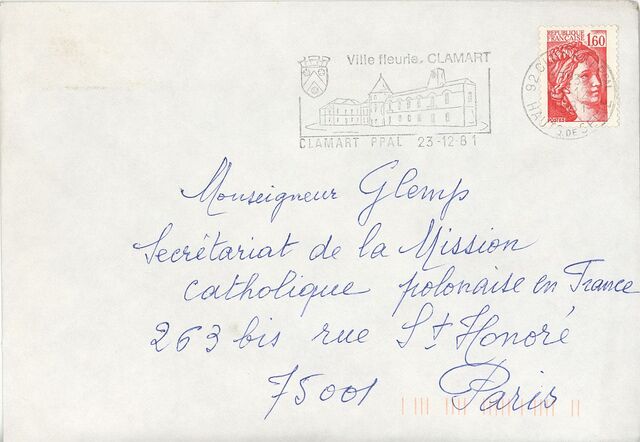 Ville fleurie. CLAMART
CLAMART PPAL 23-12-81
REPUBLIQUE
FRANCAISE 1,60
POSTES
Monseigneur Glemp
Secrétariat de la Mission
catholique polonaise en France
263 bis rue St Honoré
75001 Paris